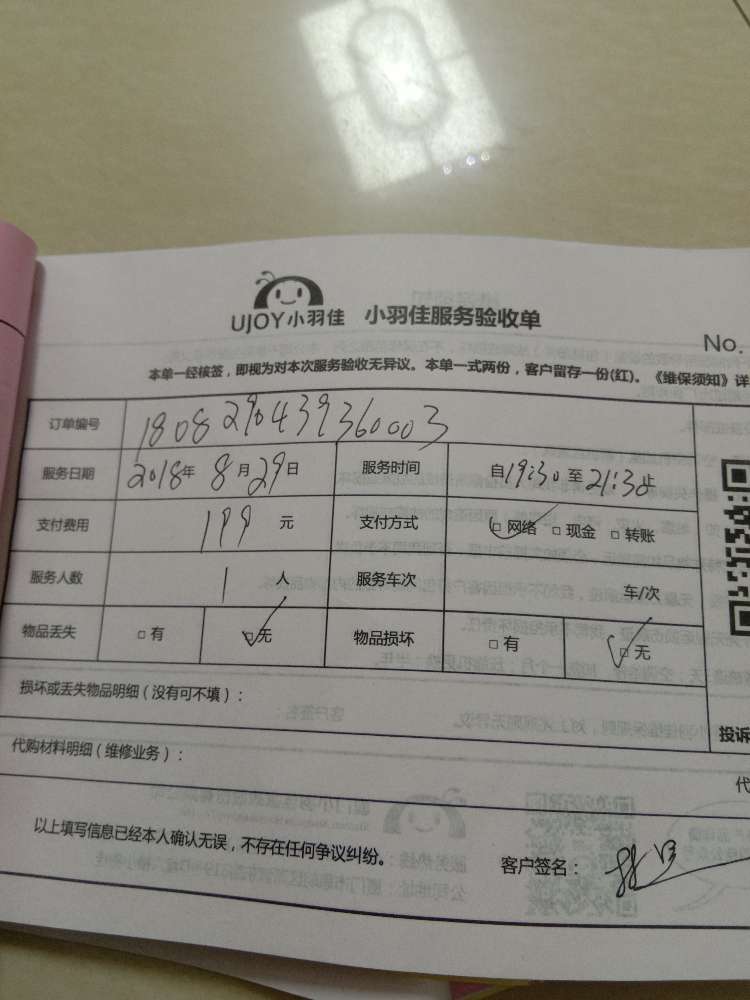 UJOY小羽佳 小羽佳服务验收单
No.
本单一经核签，即视为对本次服务验收无异议。本单一式两份，客户留存一份(红)。《维保须知》详
订单编号 1808290439360003
服务日期 2018年 8月29日 服务时间 自19:30至21:30止
支付费用 199 元 支付方式 □网络 □现金 □转账
服务人数 1 人 服务车次 车/次
物品丢失 □有 □无 物品损坏 □有 □无
损坏或丢失物品明细（没有可不填）：
投诉
代购材料明细（维修业务）：
代
以上填写信息已经本人确认无误，不存在任何争议纠纷。
客户签名：